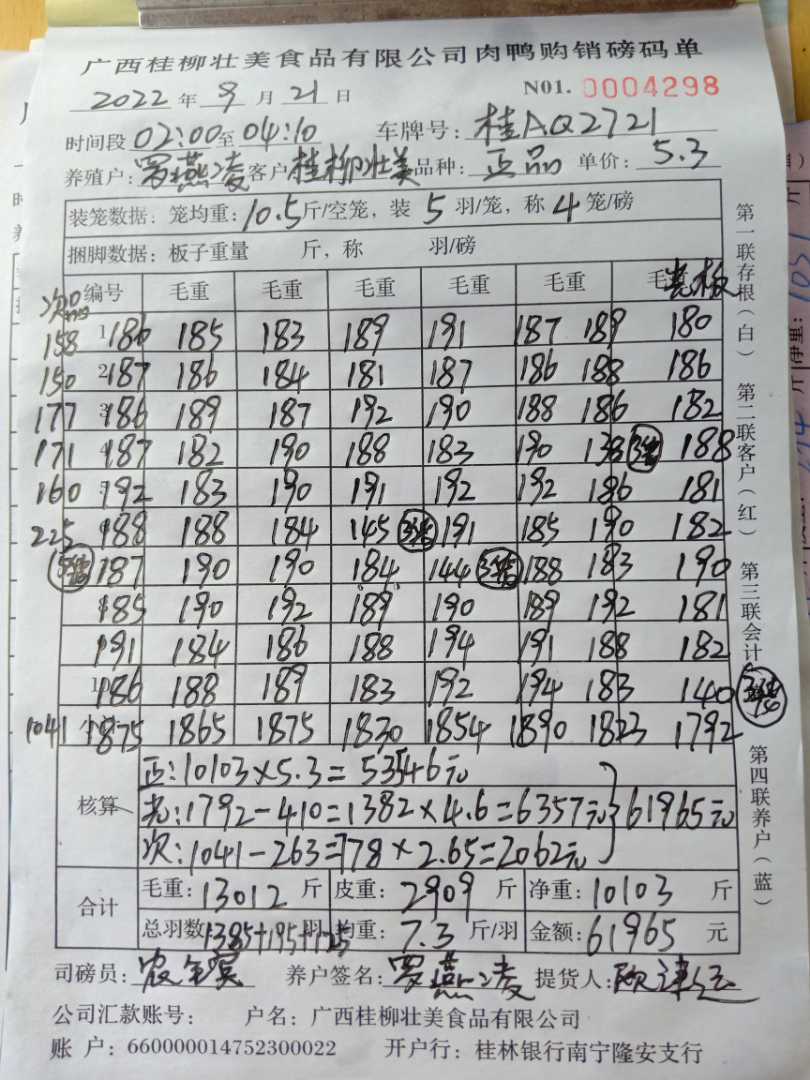 广西桂柳壮美食品有限公司肉鸭购销磅码单
2022 年 9 月 21 日 N01. 0004298
时间段 02:00 至 04:10 车牌号: 桂AQ2721
养殖户: 罗燕凌 客户 桂柳壮美 品种: 正品 单价: 5.3
装笼数据: 笼均重: 10.5 斤/空笼, 装 5 羽/笼, 称 4 笼/磅
捆脚数据: 板子重量 斤, 称 羽/磅
次品 编号 毛重 毛重 毛重 毛重 毛重
158 186 185 183 189 191 187 189 180
150 187 186 184 181 187 186 188 186
177 186 189 187 192 190 188 186 182
171 187 182 190 188 183 190 138 188
160 192 183 190 191 192 192 186 181
225 188 188 184 145 191 185 190 182
187 190 190 184 144 188 183 190
185 190 192 189 190 189 192 181
191 184 186 188 194 191 188 182
186 188 189 183 192 194 183 140
1041 1875 1865 1875 1830 1854 1890 1823 1792
核算 正: 10103×5.3=53546元
光: 1792-410=1382×4.6=6357元 61965元
次: 1041-263=778×2.65=2062元
合计 毛重: 13012 斤 皮重: 2909 斤 净重: 10103 斤
总羽数 1385+195+125 羽 均重: 7.3 斤/羽 金额: 61965 元
司磅员: 养户签名: 罗燕凌 提货人:
公司汇款账号: 户名: 广西桂柳壮美食品有限公司
账 户: 660000014752300022 开户行: 桂林银行南宁隆安支行
第一联存根(白) 第二联客户(红) 第三联会计 第四联养户(蓝)